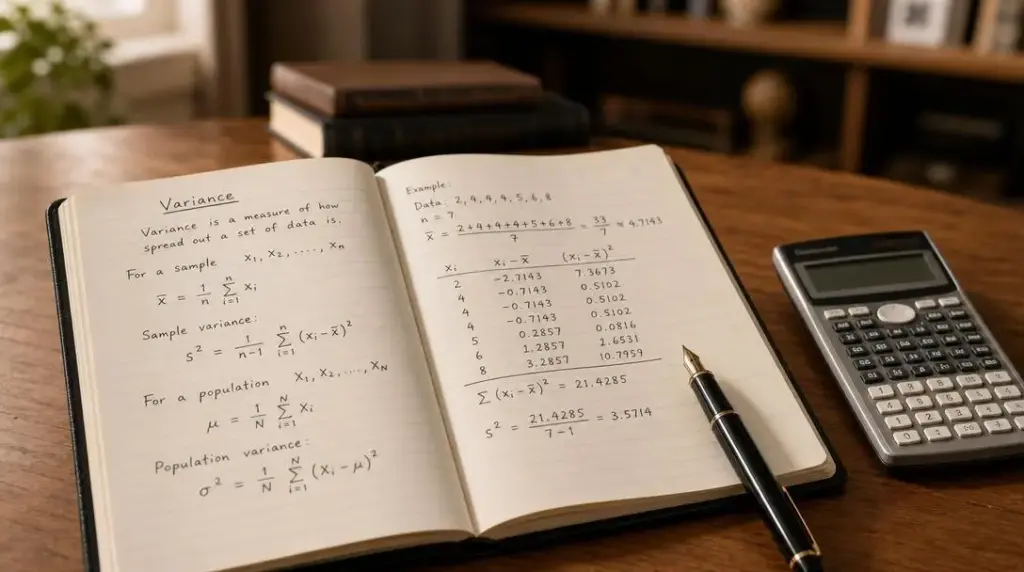 Variance
Variance is a measure of how
spread out a set of data is.
For a sample x₁, x₂, ...., xₙ
x̄ = 1/n ∑ᵢ₌₁ⁿ xᵢ
Sample variance:
s² = 1/(n-1) ∑ᵢ₌₁ⁿ (xᵢ - x̄)²
For a population x₁, x₂, ..., x_N
μ = 1/N ∑ᵢ₌₁ᴺ xᵢ
Population variance:
σ² = 1/N ∑ᵢ₌₁ᴺ (xᵢ - μ)²
Example:
Data: 2, 4, 4, 4, 5, 6, 8
n = 7
x̄ = (2+4+4+4+5+6+8)/7 = 33/7 ≈ 4.7143
xᵢ xᵢ - x̄ (xᵢ - x̄)²
2 -2.7143 7.3673
4 -0.7143 0.5102
4 -0.7143 0.5102
4 -0.7143 0.5102
5 0.2857 0.0816
6 1.2857 1.6531
8 3.2857 10.7959
∑ (xᵢ - x̄)² = 21.4285
s² = 21.4285/(7-1) = 3.5714